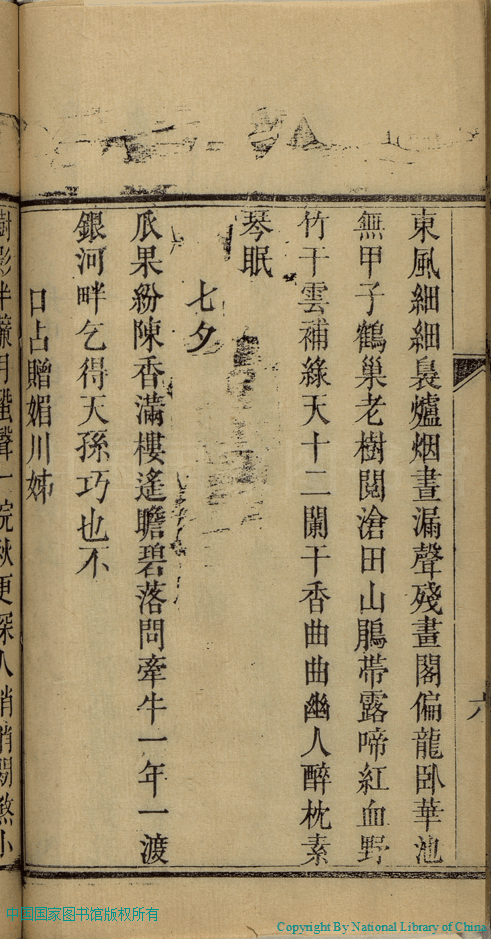 東風細細裊爐烟晝漏聲殘畫閣偏龍卧華池
無甲子鶴巢老樹閱滄田山鵑帯露啼紅血野
竹干雲補綠天十二闌干香曲曲幽人醉枕素
琴眠
七夕
瓜果紛陳香滿樓遙瞻碧落問牽牛一年一渡
銀河畔乞得天孫巧也不
口占贈媚川姊
樹影半簾月蛩聲一院秋更深人悄悄閒煞小
六
中国国家图书馆版权所有
Copyright By National Library of China